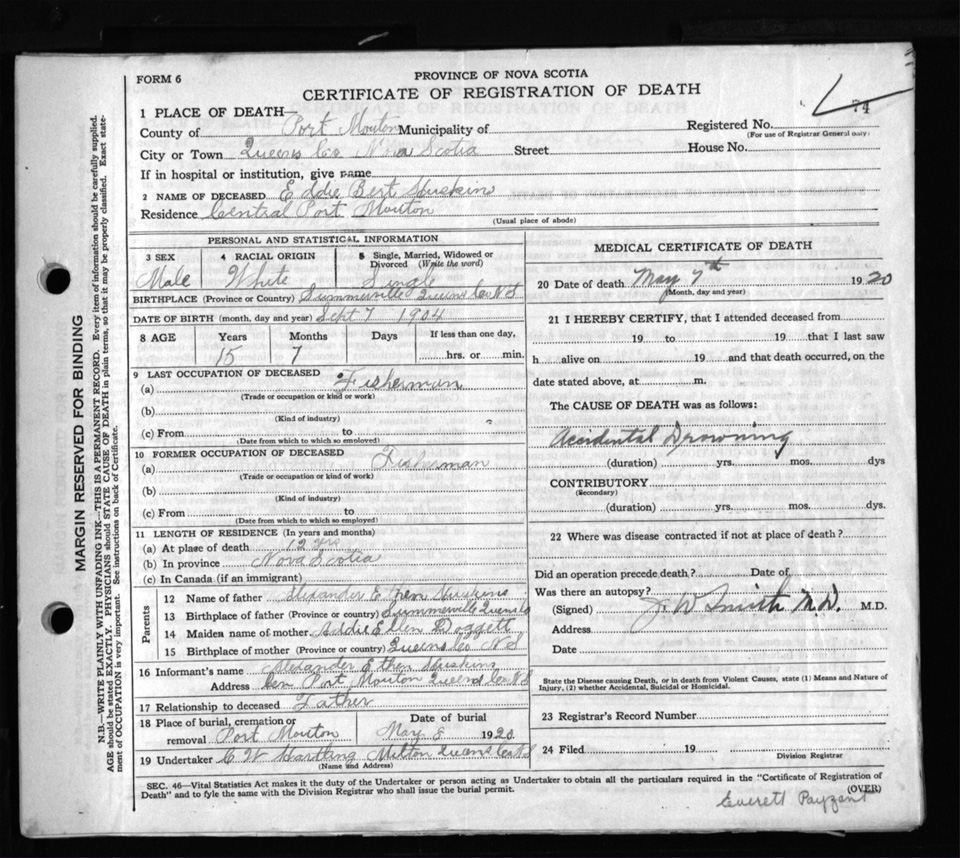 FORM 6
PROVINCE OF NOVA SCOTIA
CERTIFICATE OF REGISTRATION OF DEATH
74
1 PLACE OF DEATH
County of Port Mouton Municipality of
Registered No.
(For use of Registrar General only)
City or Town Queens Co Nova Scotia Street House No.
If in hospital or institution, give name
2 NAME OF DECEASED Eddie Bert Huskins
Residence Central Port Mouton
(Usual place of abode)
PERSONAL AND STATISTICAL INFORMATION
3 SEX Male
4 RACIAL ORIGIN White
5 Single, Married, Widowed or Divorced (Write the word) Single
BIRTHPLACE (Province or Country) Summerville Queens Co N S
DATE OF BIRTH (month, day and year) Sept 7 1904
8 AGE Years Months Days If less than one day,
15 7 hrs. or min.
9 LAST OCCUPATION OF DECEASED
(a) Fisherman
(Trade or occupation or kind of work)
(b)
(Kind of industry)
(c) From to
(Date from which to which so employed)
10 FORMER OCCUPATION OF DECEASED
(a) Fisherman
(Trade or occupation or kind of work)
(b)
(Kind of industry)
(c) From to
(Date from which to which so employed)
11 LENGTH OF RESIDENCE (In years and months)
(a) At place of death 12 yrs
(b) In province Nova Scotia
(c) In Canada (if an immigrant)
Parents
12 Name of father Alexander Ethen Huskins
13 Birthplace of father (Province or country) Summerville Queens Co
14 Maiden name of mother Addie Ellen Doggett
15 Birthplace of mother (Province or country) Queens Co N S
16 Informant's name Alexander Ethen Huskins
Address Cen Port Mouton Queens Co N S
17 Relationship to deceased Father
18 Place of burial, cremation or removal Port Mouton
Date of burial May 8 1920
19 Undertaker C W Hartling Milton Queens Co N S
(Name and Address)
MEDICAL CERTIFICATE OF DEATH
20 Date of death May 7th 1920
(Month, day and year)
21 I HEREBY CERTIFY, that I attended deceased from
19 to 19 that I last saw
h alive on 19 and that death occurred, on the
date stated above, at m.
The CAUSE OF DEATH was as follows:
Accidental Drowning
(duration) yrs. mos. dys
CONTRIBUTORY
(Secondary)
(duration) yrs. mos. dys.
22 Where was disease contracted if not at place of death?
Did an operation precede death? Date of
Was there an autopsy?
(Signed) J. W Smith M.D. M.D.
Address
Date
State the Disease causing Death, or in death from Violent Causes, state (1) Means and Nature of
Injury, (2) whether Accidental, Suicidal or Homicidal.
23 Registrar's Record Number
24 Filed 19
Division Registrar
SEC. 46—Vital Statistics Act makes it the duty of the Undertaker or person acting as Undertaker to obtain all the particulars required in the "Certificate of Registration of
Death" and to fyle the same with the Division Registrar who shall issue the burial permit.
(OVER)
Everett Payzant
MARGIN RESERVED FOR BINDING
N.B.—WRITE PLAINLY WITH UNFADING INK—THIS IS A PERMANENT RECORD. Every item of information should be carefully supplied.
AGE should be stated EXACTLY. PHYSICIANS should STATE CAUSE OF DEATH in plain terms, so that it may be properly classified. Exact state-
ment of OCCUPATION is very important. See instructions on back of Certificate.